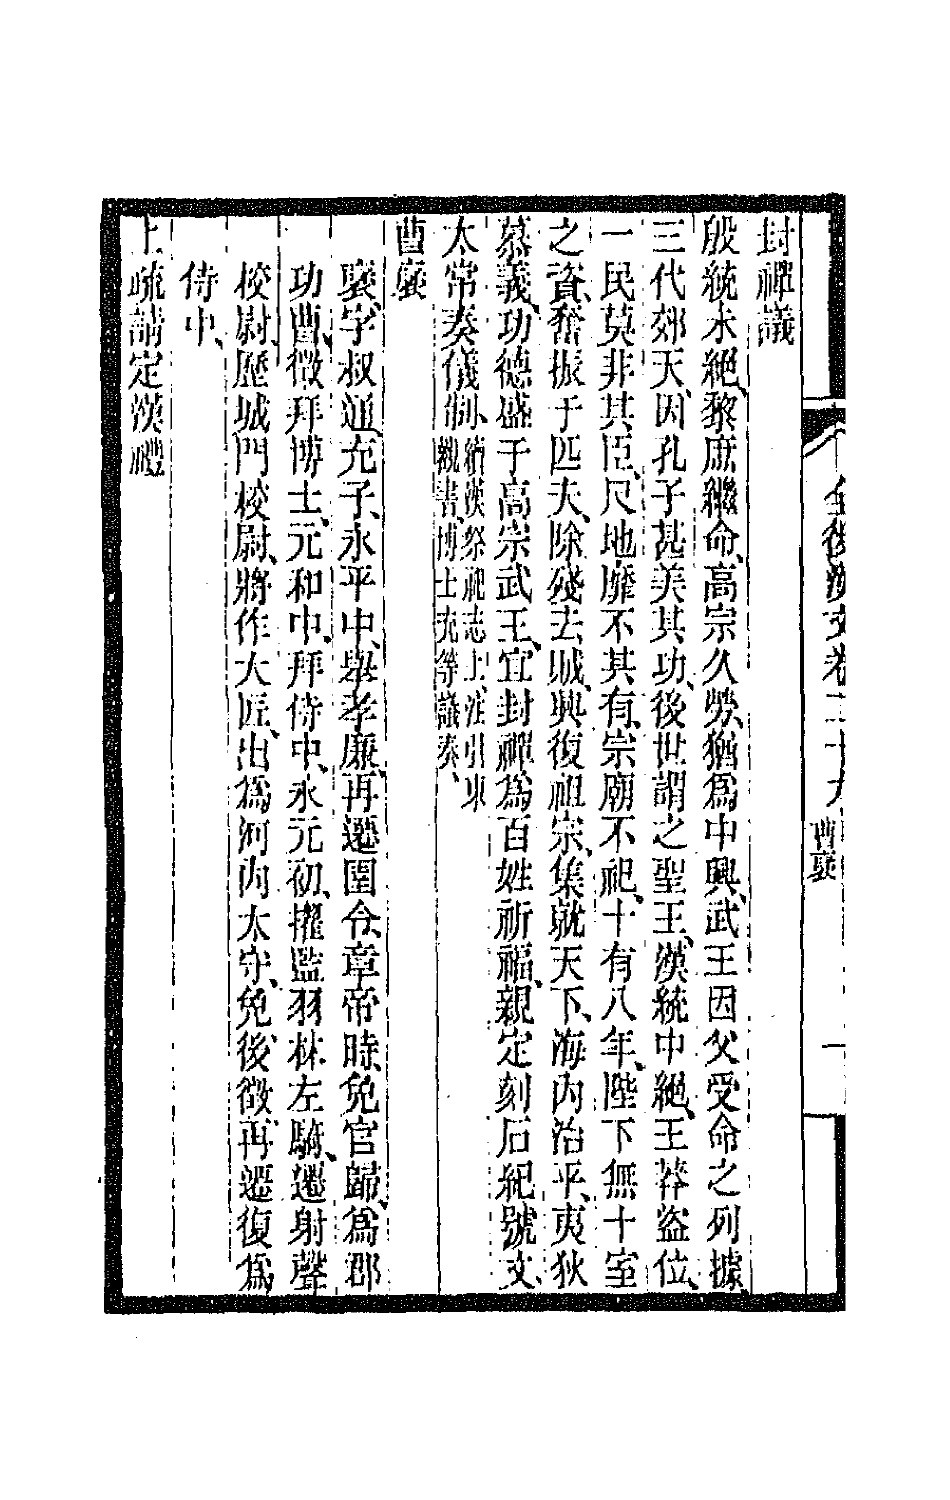 全後漢文卷二十九 曹襃 一
封禪議
殷統未絕、黎庶繼命、高宗久勞、猶爲中興、武王因父受命之列、據
三代郊天、因孔子甚美其功、後世謂之聖王、漢統中絕、王莽盜位、
一民莫非其臣、尺地靡不其有、宗廟不祀、十有八年、陛下無十室
之資、奮振于匹夫、除殘去賊、興復祖宗、集就天下、海內治平、夷狄
慕義、功德盛于高宗武王、宜封禪爲百姓祈福、親定刻石紀號文、
太常奏儀制、續漢祭祀志上、注引東
觀書、博士充等議奏、
曹襃
襃、字叔通、充子、永平中、舉孝廉、再遷圉令、章帝時、免官歸、爲郡
功曹、徵拜博士、元和中、拜侍中、永元初、擢監羽林左騎、遷射聲
校尉、歷城門校尉、將作大匠、出爲河內太守、免、後徵、再遷、復爲
侍中、
上疏請定漢禮